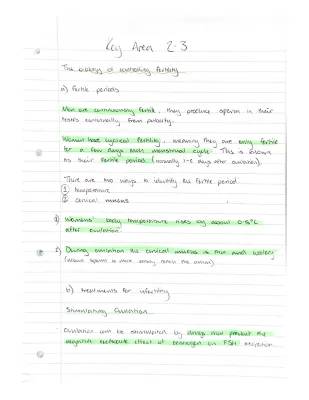 Key Area 2.3
The biology of controlling fertility
a) fertile periods
Men are continuously fertile, they produce sperm in their
testes continually from puberty.
Women have cyclical fertility, meaning they are only fertile
for a few days each menstrual cycle. This is known
as their fertile period (normally 1-2 days after ovulation).
There are two ways to identify the fertile period.
① temperature
② cervical mucus
① Womens' body temperature rises by about 0.5°C
after ovulation.
② During ovulation the cervical mucus is thin and watery
(allows sperm to more easily reach the ovum)
b) treatments for infertility
Stimulating Ovulation
Ovulation can be stimulated by drugs that prevent the
negative feedback effect of oestrogen on FSH secretion.